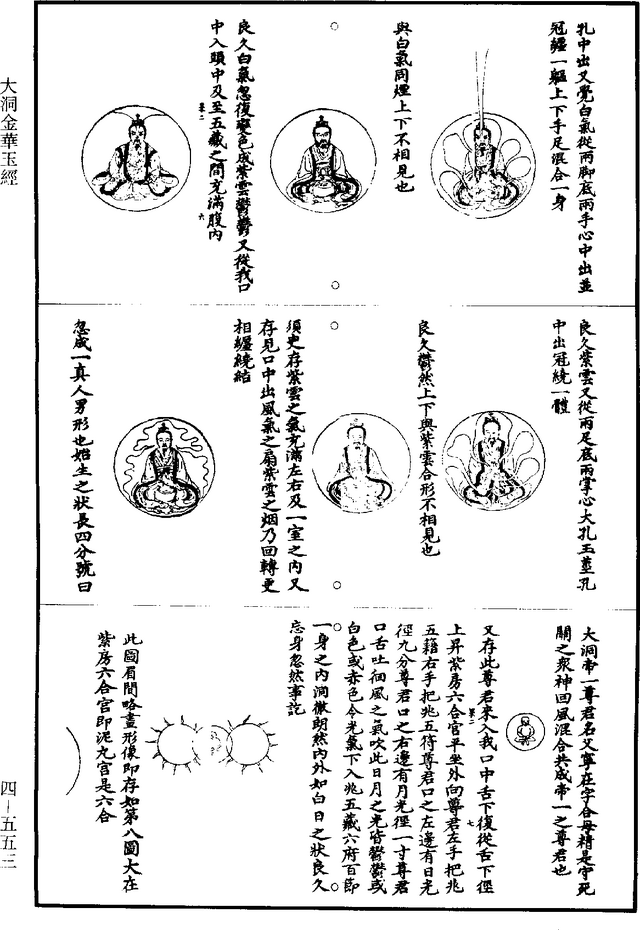 孔中出又覺白氣從兩脚底兩手心中出並
冠纏一軀上下手足混合一身
與白氣同煙上下不相見也
良久白氣忽復變色成紫雲鬱鬱又從我口
中入頭中及至五藏之間充滿腹內
良久紫雲又從兩足底兩掌心大孔玉莖孔
中出冠繞一體
良久鬱然上下與紫雲合形不相見也
須臾存紫雲之氣充滿左右及一室之內又
存見口中出風氣之扇紫雲之烟乃回轉更
相纏繞結
忽成一真人男形也始生之狀長四分號曰
大洞帝一尊君名父寧在字合母精是守死
關之衆神回風混合共成帝一之尊君也
又存此尊君來入我口中舌下復從舌下徑
上昇紫房六合宮平坐外向尊君左手把兆
五籍右手把兆五符尊君口之左邊有日光
徑九分尊君口之右邊有月光徑一寸尊君
口舌吐徊風之氣吹此日月之光皆鬱鬱或
白色或赤色令光氣下入兆五藏六府百節
一身之內洞徹朗然內外如白日之狀良久
忘身忽然事訖
此圖眉間略畫形像即存如第八圖大在
紫房六合宮即泥丸宮是六合
大洞金華玉經
四—五五三